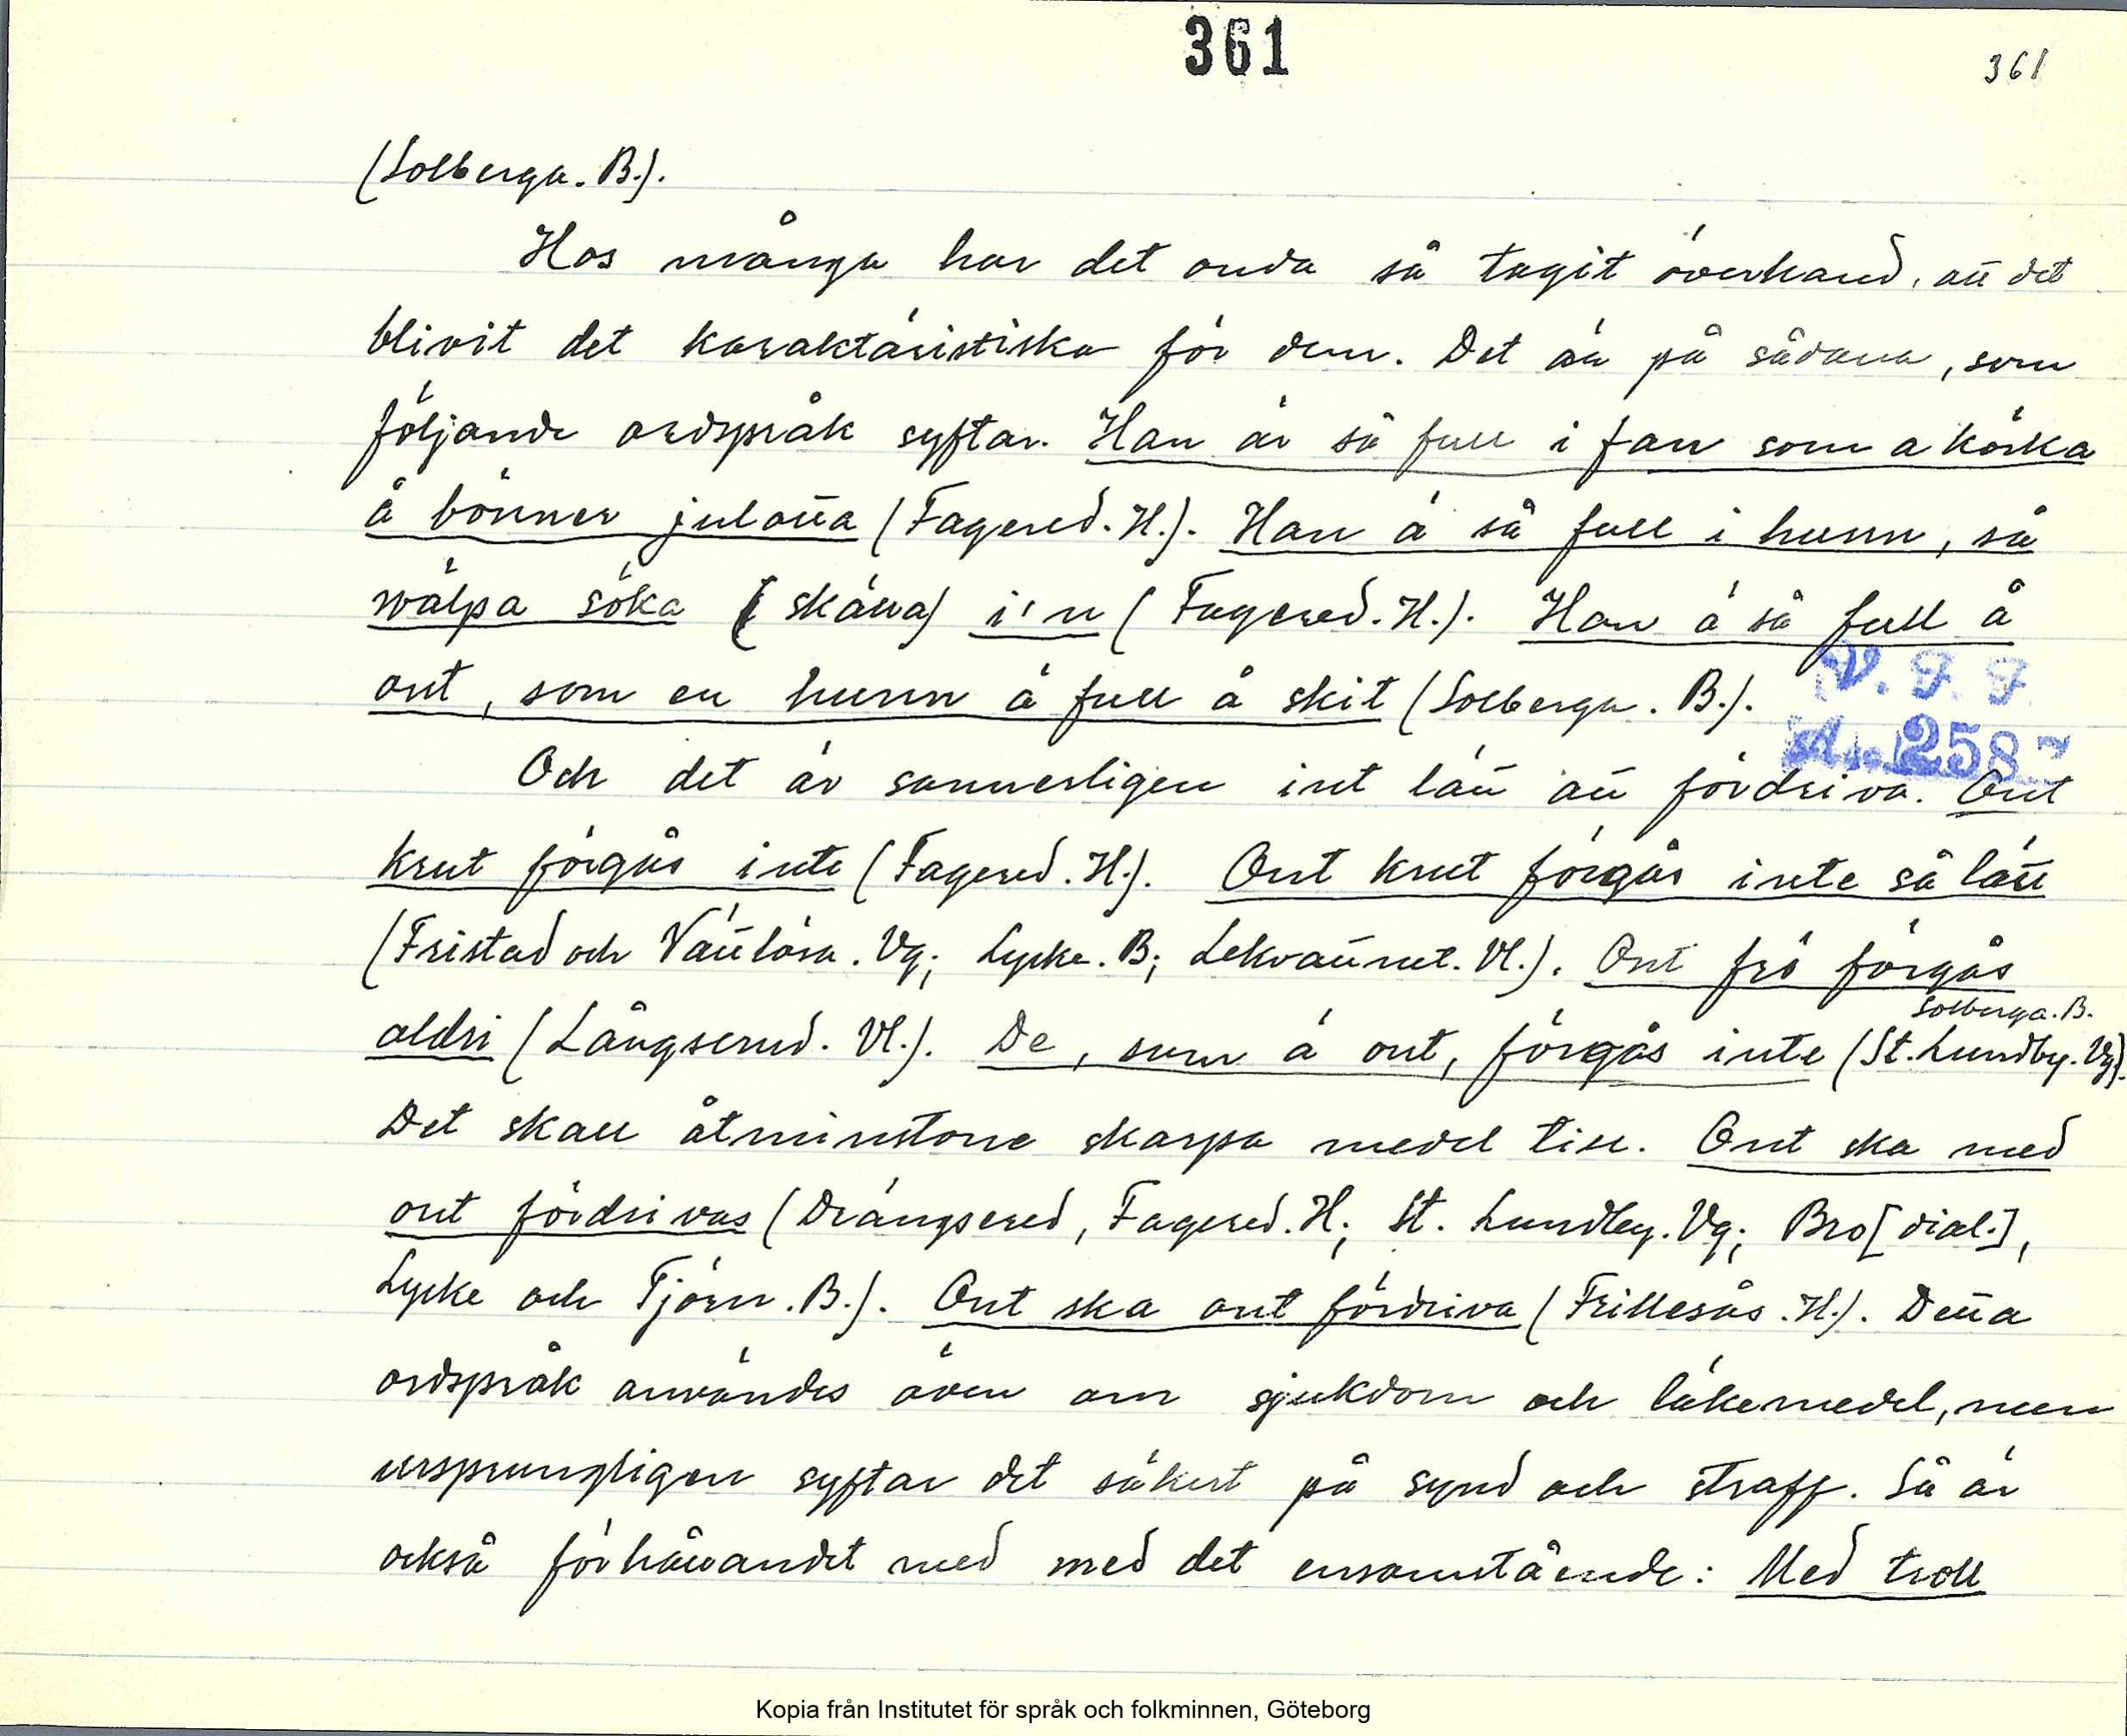 361
361
(Solberga. B.).
Hos många har det onda så tagit överhand, att det
blivit det karaktäristiska för dem. Det är på sådana, som
följande ordspråk syftar. Han är så full i fan som a körka
å bönner julotta (Fagered. H.). Han ä så full i hunn, så
wälpa söka (skäua) i'n (Fagered. H.). Han ä så full å
ont, som en hunn ä full å skit (Solberga. B.).
V. F. F.
258
Och det är sannerligen int lätt att fördriva. Ont
krut förgås inte (Fagered. H.). Ont krut förgås inte så lätt
(Fristad och Vättlösa. Vg; Lycke. B; Lekvattnet. Vl.). Ont frö förgås
Solberga. B.
aldri (Långserud. Vl.). De, som ä ont, förgås inte (St. Lundby. Vg).
Det skall åtminstone skarpa medel till. Ont ska med
ont fördrivas (Drängsered, Fagered. H; St. Lundby. Vg; Bro [dial.],
Lycke och Tjörn. B.). Ont ska ont fördriva (Frillesås. H.). Detta
ordspråk användes även om sjukdom och läkemedel, men
ursprungligen syftar det säkert på synd och straff. Så är
också förhållandet med med det ensamstående: Med troll
Kopia från Institutet för språk och folkminnen, Göteborg